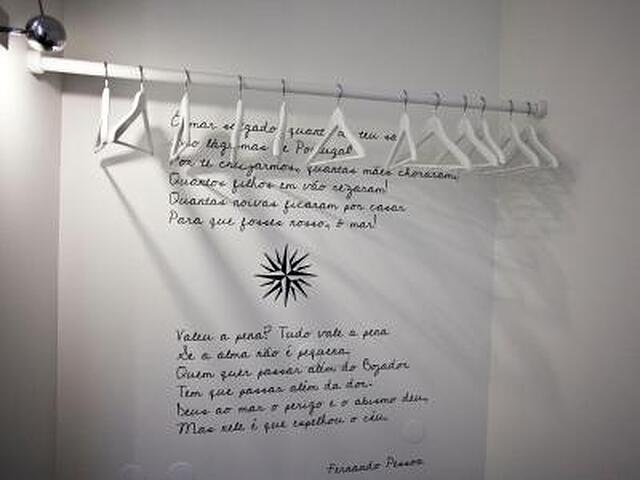 Ó mar salgado, quanto do teu sal
São lágrimas de Portugal
Por te cruzarmos, quantas mães choraram,
Quantos filhos em vão rezaram!
Quantas noivas ficaram por casar
Para que fosses nosso, ó mar!
Valeu a pena? Tudo vale a pena
Se a alma não é pequena.
Quem quer passar além do Bojador
Tem que passar além da dor.
Deus ao mar o perigo e o abismo deu,
Mas nele é que espelhou o céu.
Fernando Pessoa